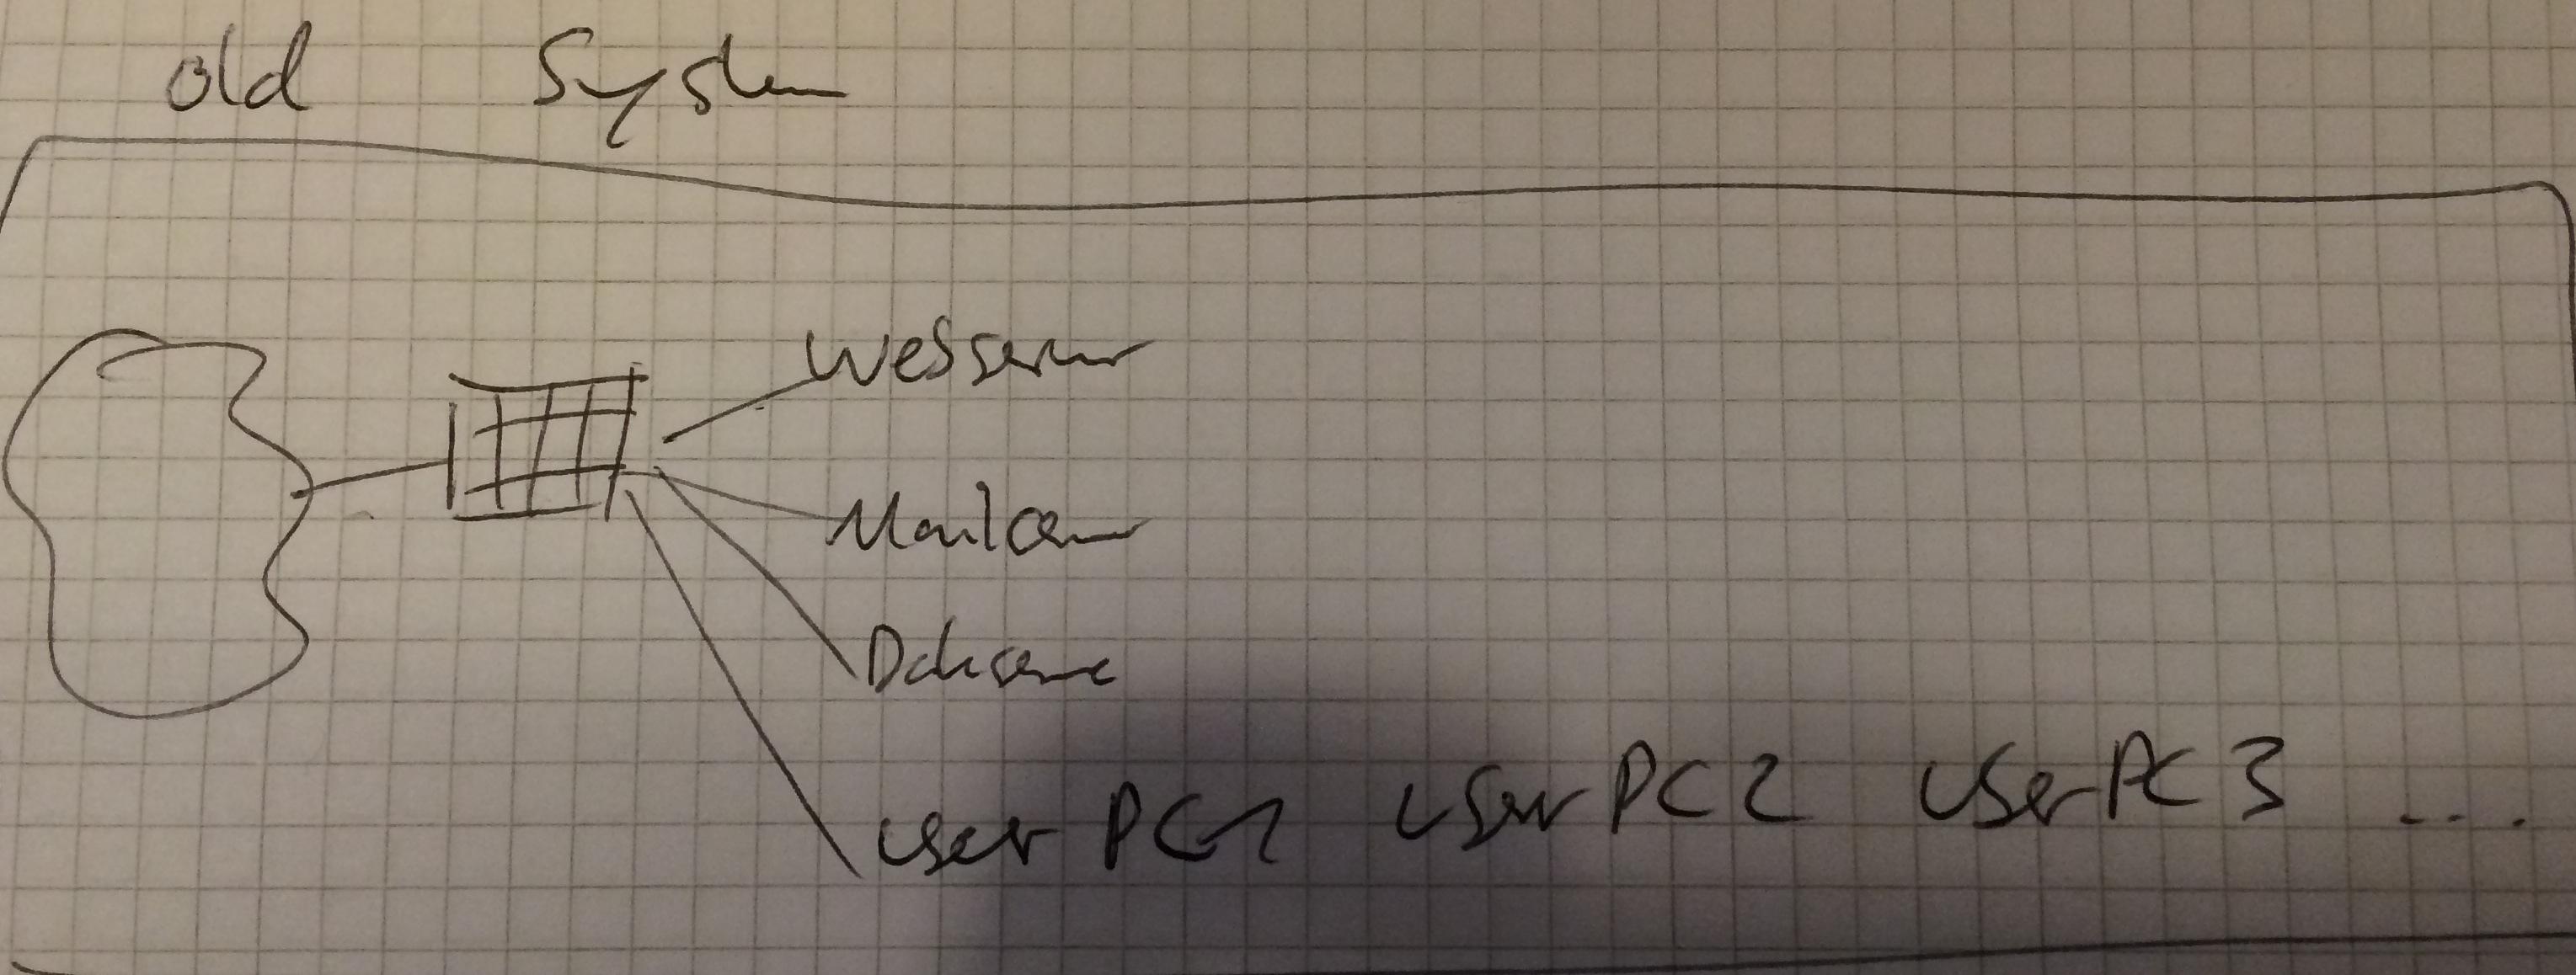 old System
Webserver
Mailserver
Dataserver
user PC1 user PC2 user PC3 ...